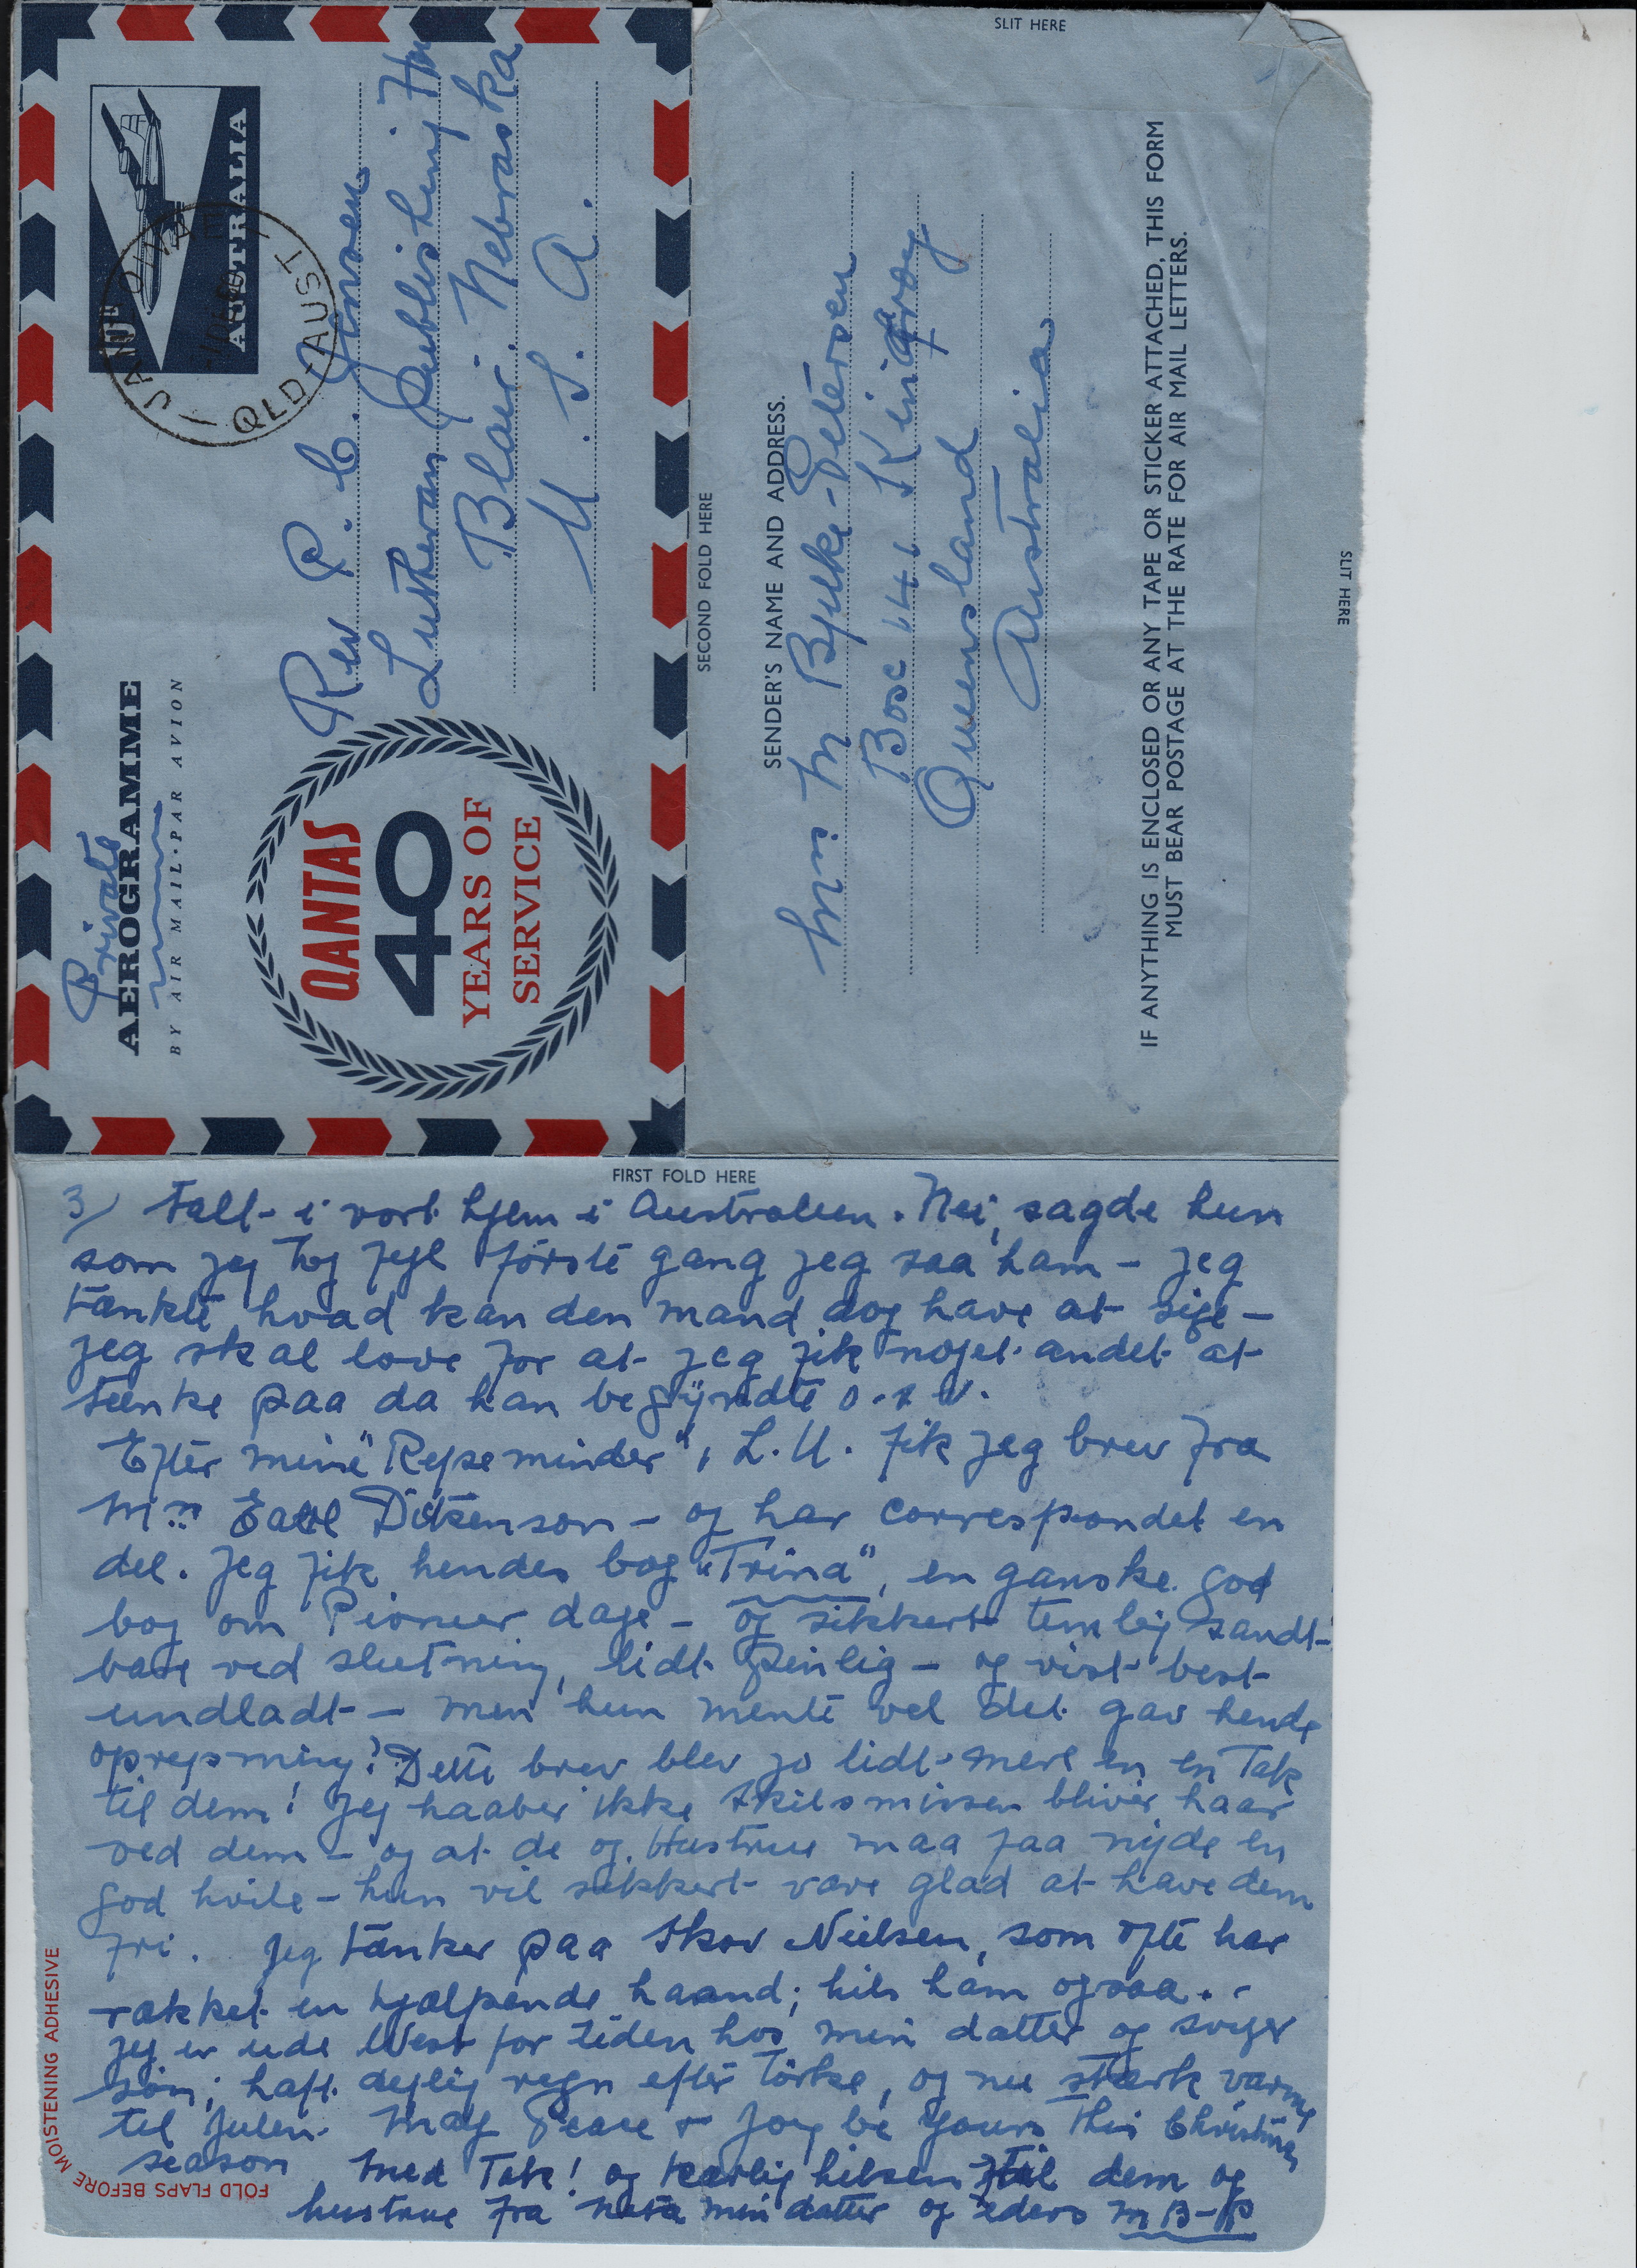 Private
AEROGRAMME
BY AIR MAIL·PAR AVION
10D
AUSTRALIA
QLD-AUST
QANTAS
40
YEARS OF
SERVICE
Rev P. C. Jensen
Lutheran Publishing
Blair. Nebraska
U. S. A.
SECOND FOLD HERE
SLIT HERE
SENDER'S NAME AND ADDRESS.
Mrs M Bjelke-Petersen
Box 141 Kingaroy
Queensland
Australia
IF ANYTHING IS ENCLOSED OR ANY TAPE OR STICKER ATTACHED, THIS FORM
MUST BEAR POSTAGE AT THE RATE FOR AIR MAIL LETTERS.
SLIT HERE
FIRST FOLD HERE
3/ Fall- i vort hjem i Australien. Nei, sagde hun
som jeg tog fejl förste gang jeg saa ham - jeg
tænkte hvad kan den mand dog have at sige -
jeg skal love for at jeg fik noget andet at
tænke paa da han begÿndte o.s.v.
Efter mine "Rejseminder" i L.U. fik jeg brev fra
Mrs Earl Dikenson - og har correspondet en
del. Jeg fik hendes bog "Trina", en ganske god
bog om Pioneer dage - og sikkert temlig sandt-
bare ved slutning, lidt penlig - og vist best
undladt - men hun mente vel det gav hende
oprejsning? Dette brev blev jo lidt mere en en Tak
til dem! Jeg haaber ikke skilsmissen bliver haar
ved dem - og at de og Hustrue maa faa nijde en
god hvile - hun vil sikkert være glad at have dem
fri. Jeg tænker paa Skov Nielsen, som ofte har
rækket en hjælpende haand; hils ham ogsaa.
Jeg er ude West for tiden hos min datter og sviger
søn; haft dejlig regn efter Törke, og nu stærk varme
til Julen. May Peace & Joy be yours this Christmas
season Med Tak! og kærlig hilsen til dem og
hustrue fra min datter og eders M B-P
FOLD FLAPS BEFORE MOISTENING ADHESIVE